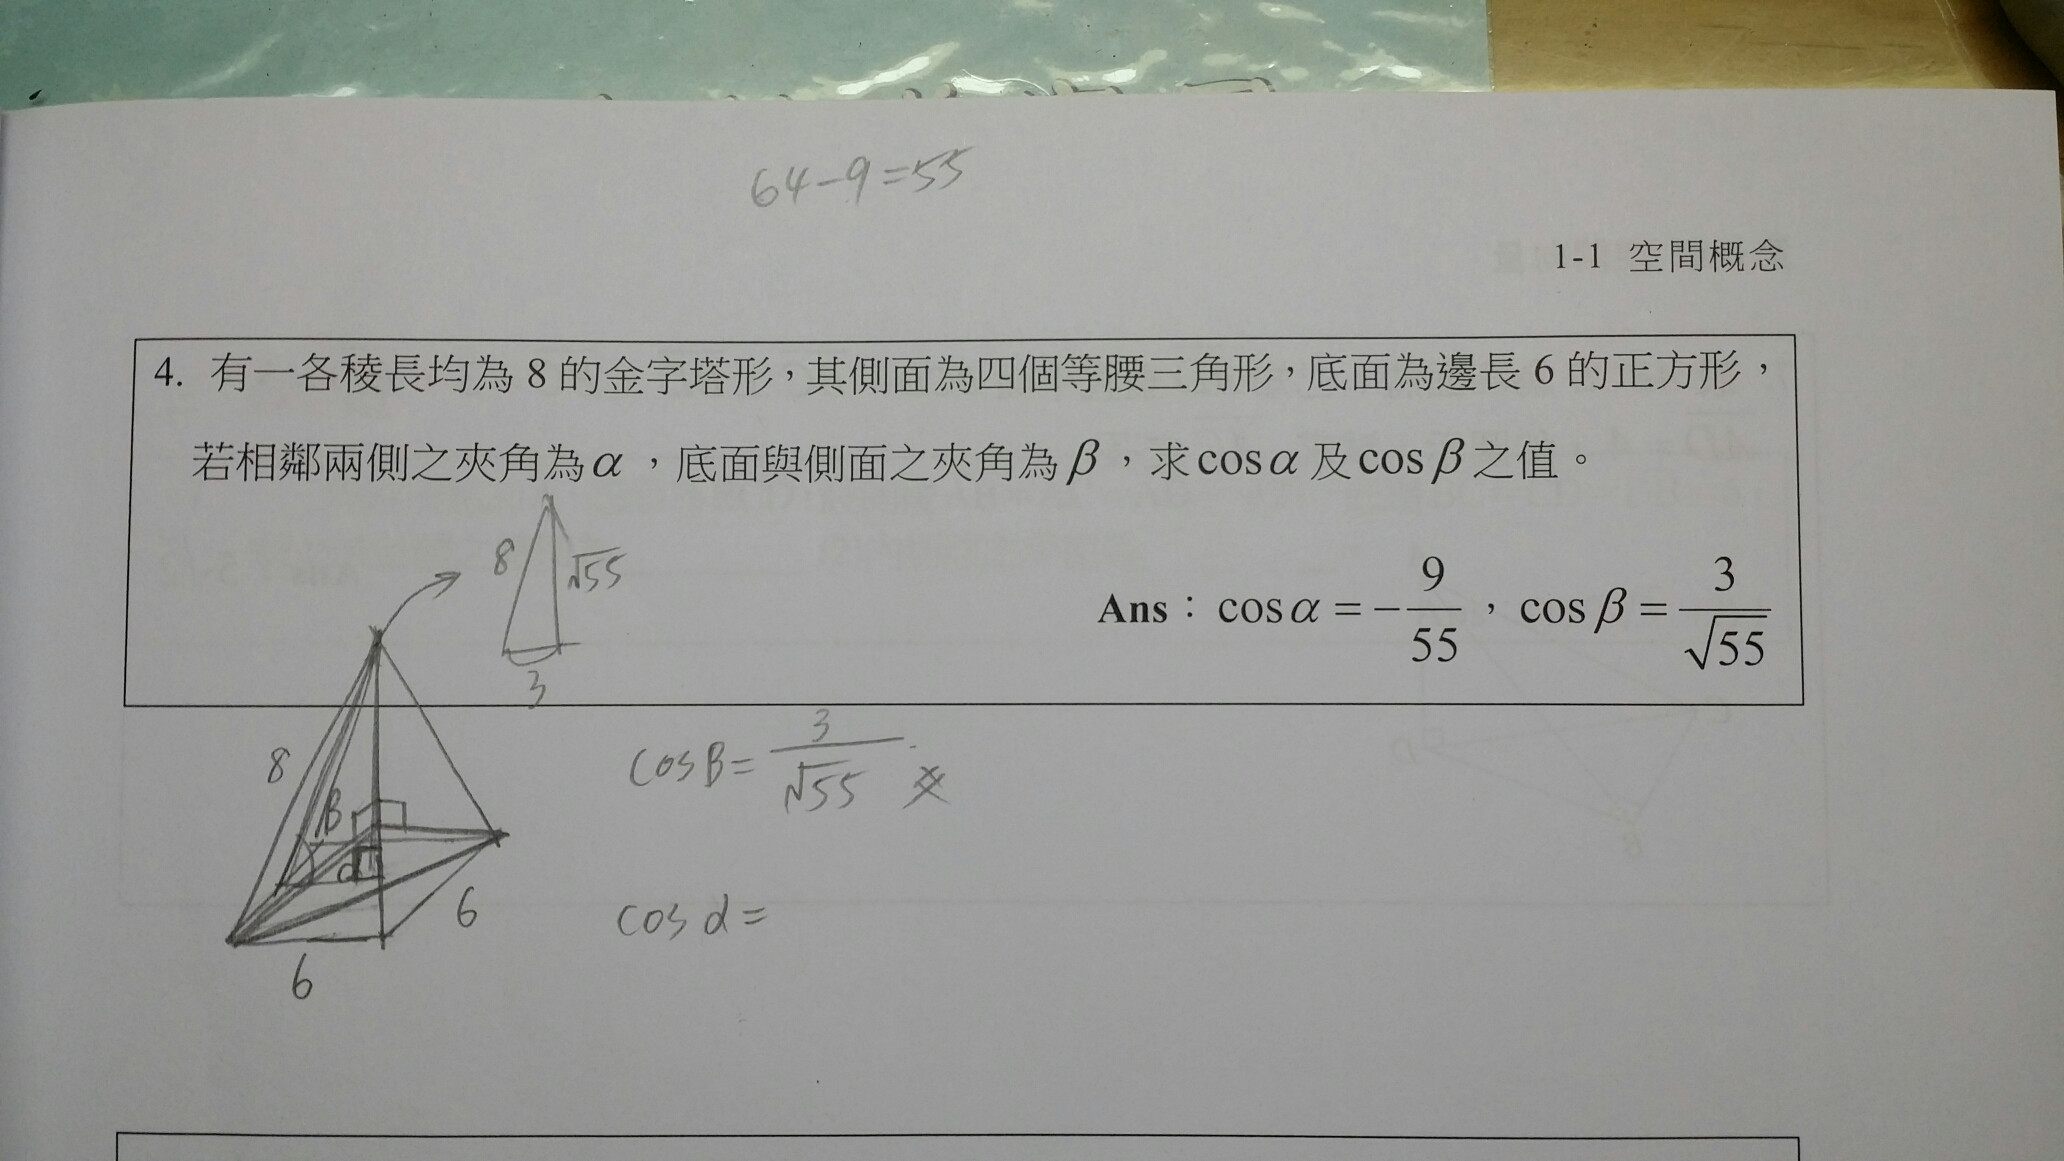 64-9=55
1-1 空間概念
4. 有一各稜長均為 8 的金字塔形，其側面為四個等腰三角形，底面為邊長 6 的正方形，
若相鄰兩側之夾角為α，底面與側面之夾角為β，求cosα及cosβ之值。
8 √55
3
Ans：cosα=-9/55，cosβ=3/√55
8
β
α
6
6
cosβ=3/√55
cosα=